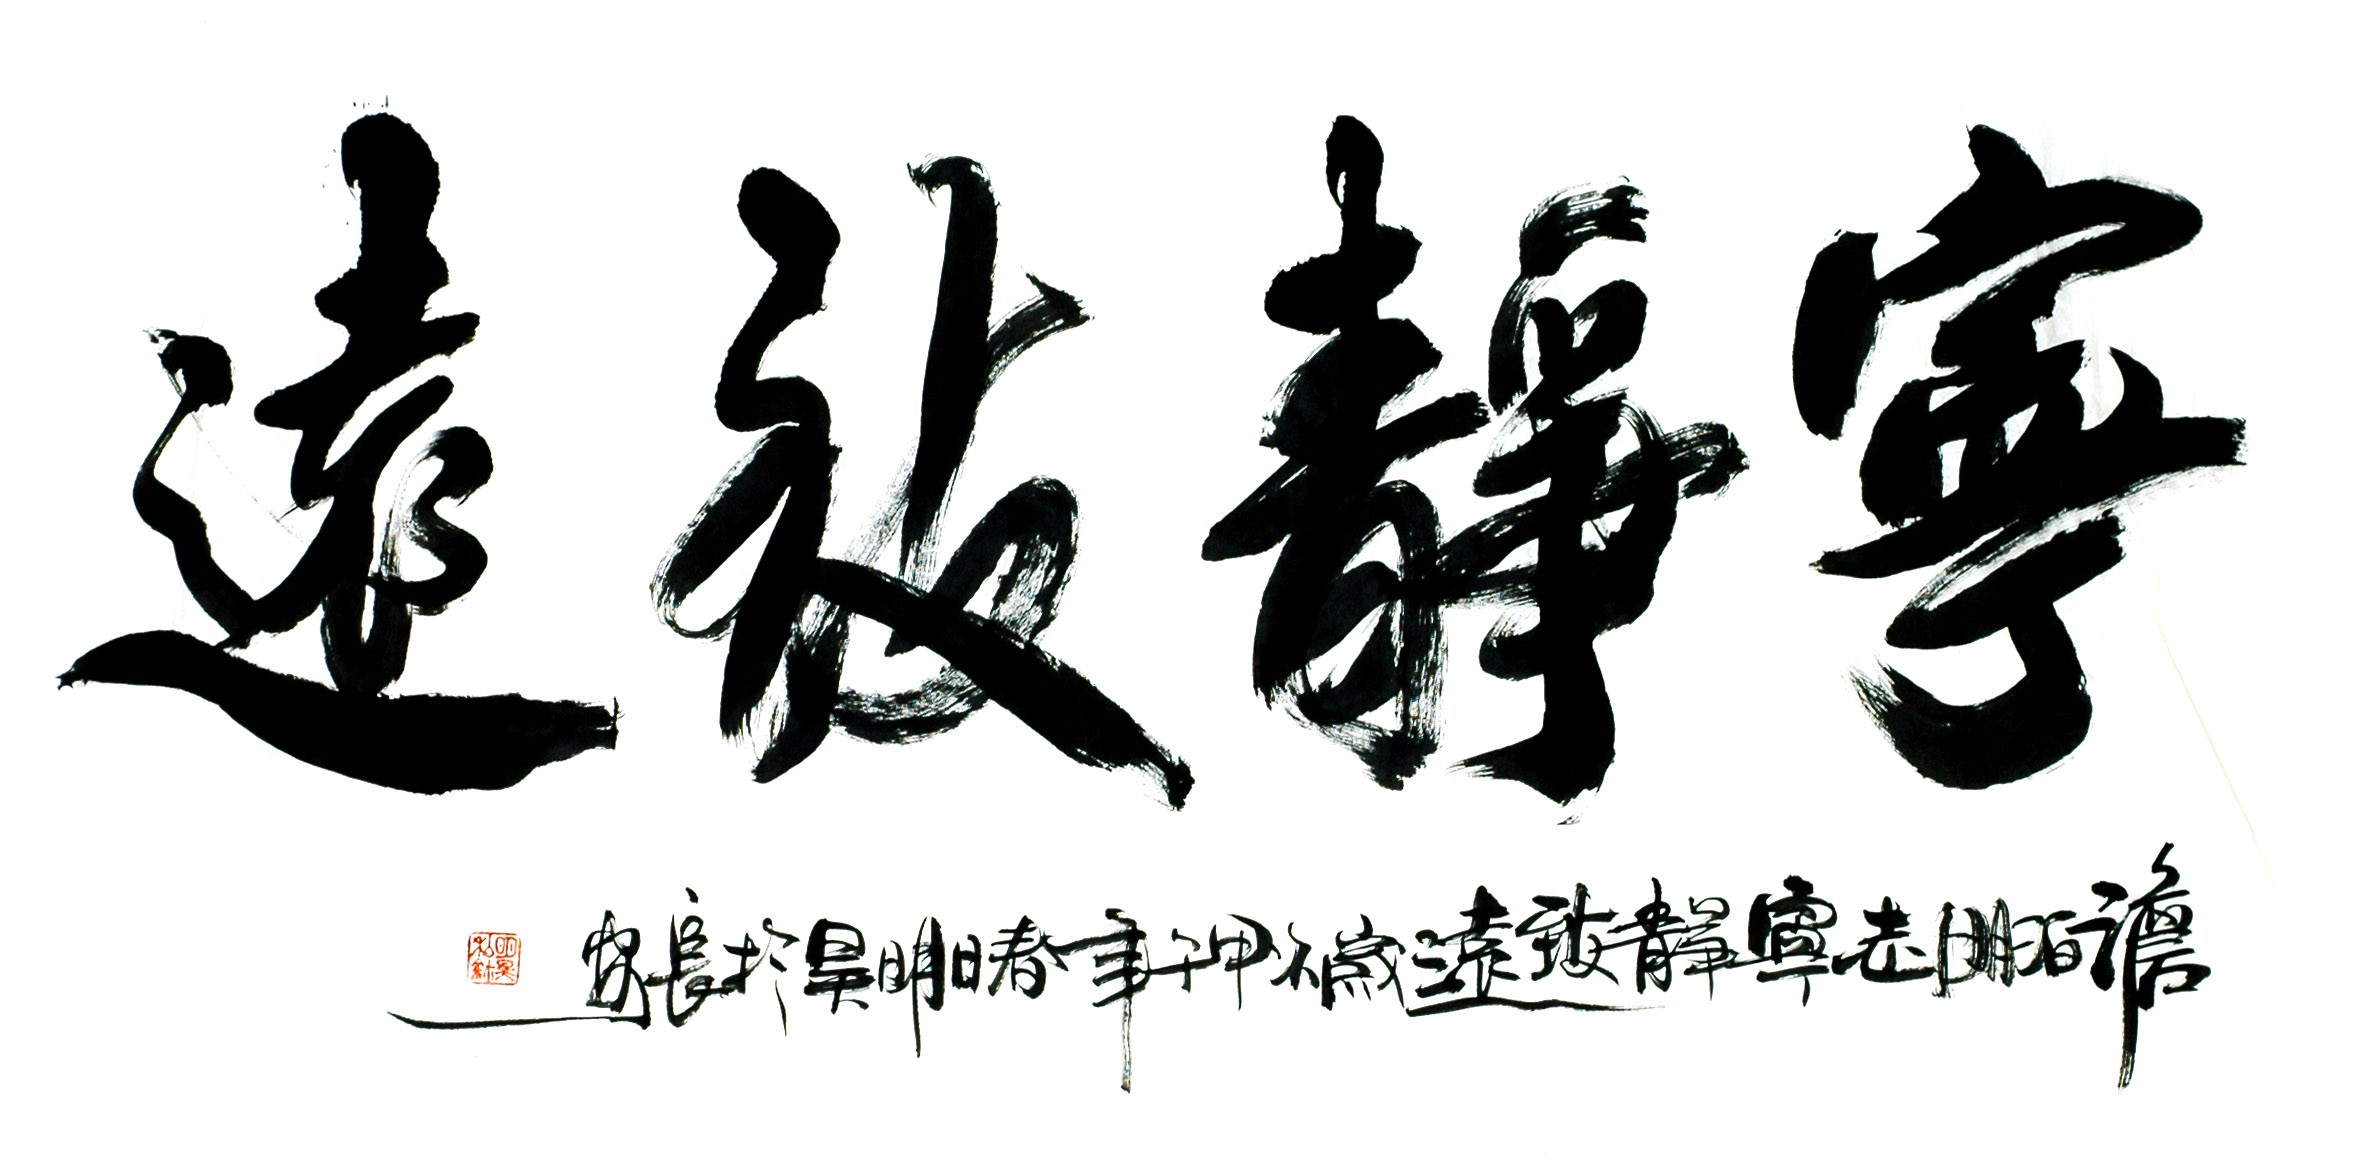 寧靜致遠
澹泊明志寧靜致遠歲在甲午年春日明昊於長安